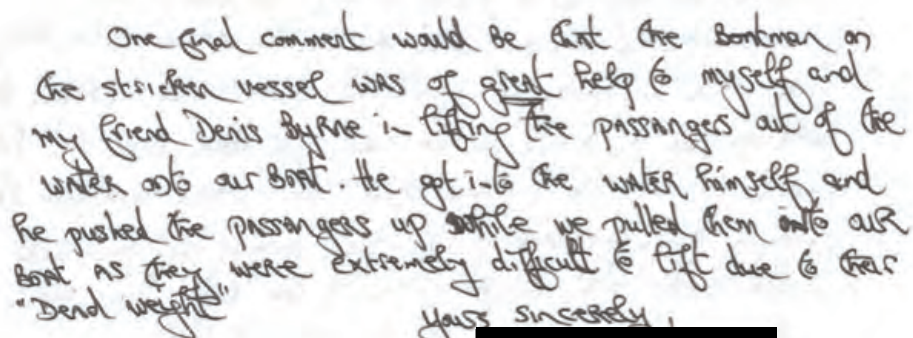 One final comment would be that the Boatman on
the stricken vessel was of great help to myself and
my friend Denis Byrne in lifting the passangers out of the
water onto our Boat. He got into the water himself and
he pushed the passangers up while we pulled them onto our
Boat as they were extremely difficult to lift due to their
"Dead weight"
yours sincerely,